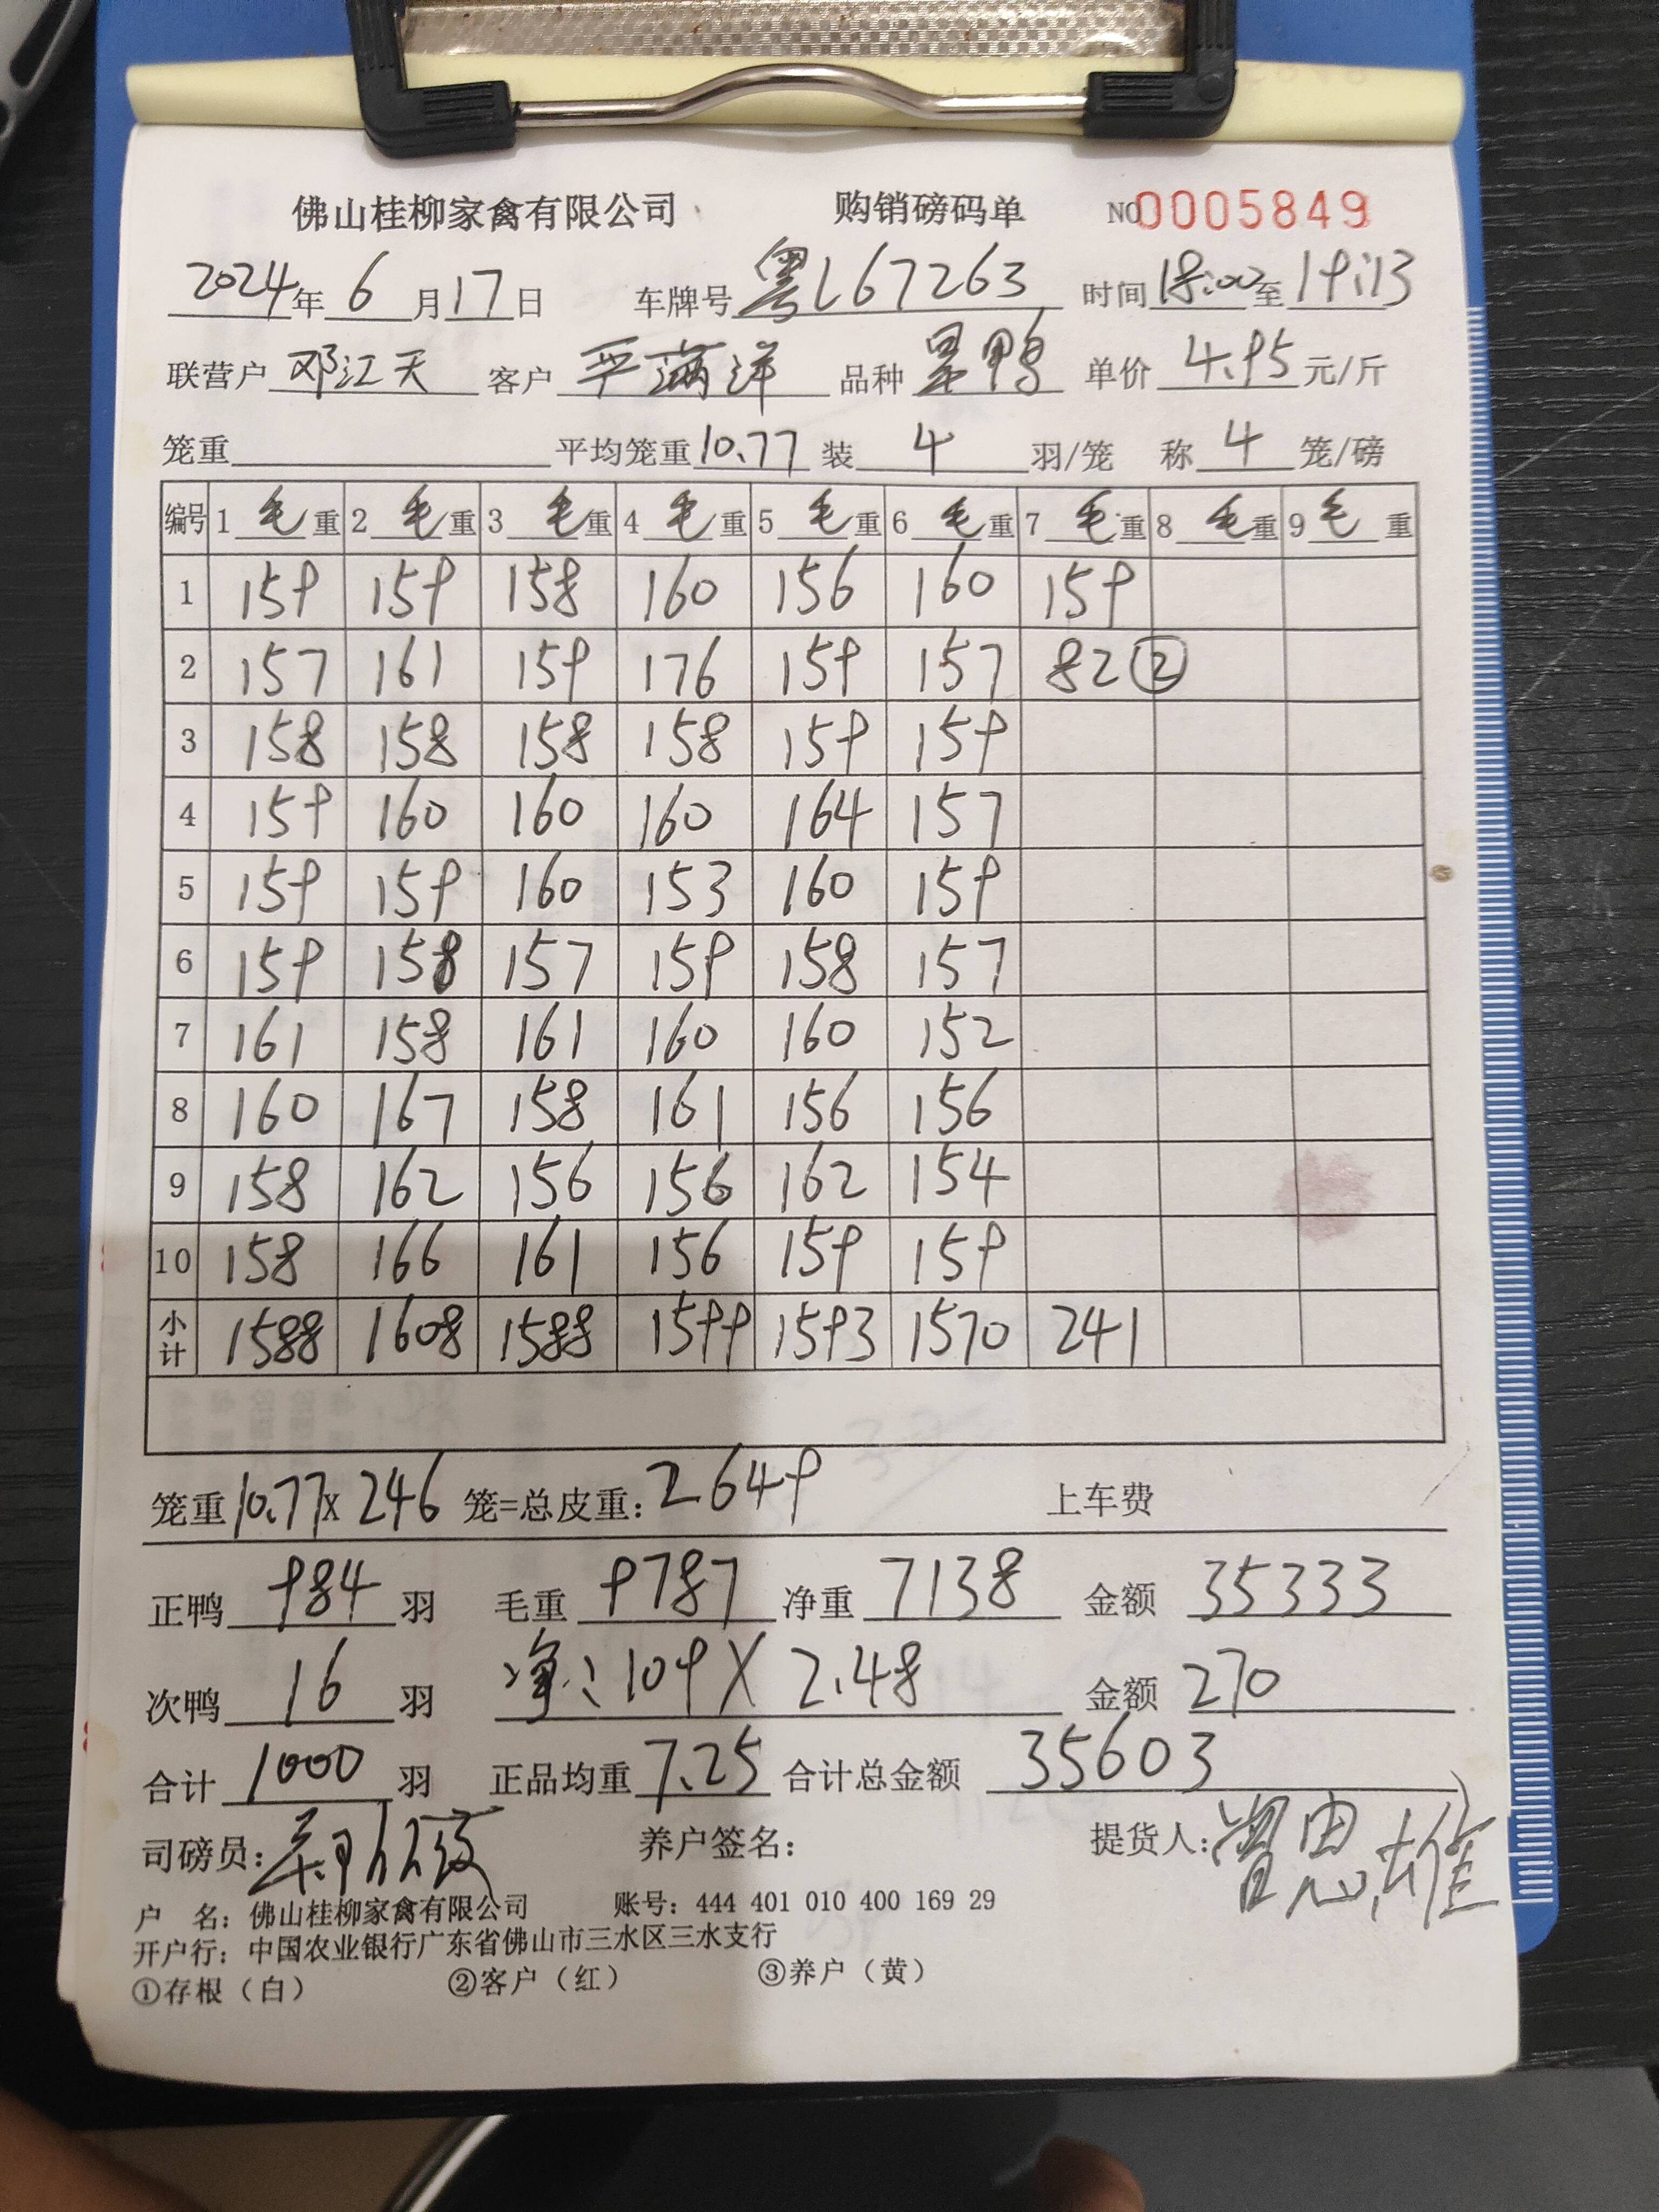 佛山桂柳家禽有限公司 购销磅码单 NO 0005849
2024年 6 月 17 日 车牌号 粤L67263 时间 18:00 至 19:13
联营户 邓江天 客户 严满洋 品种 鸭 单价 4.95 元/斤
笼重 平均笼重 10.77 装 4 羽/笼 称 4 笼/磅
编号 1 毛重 2 毛重 3 毛重 4 毛重 5 毛重 6 毛重 7 毛重 8 毛重 9 毛重
1 159 159 158 160 156 160 159
2 157 161 159 176 159 157 82 ②
3 158 158 158 158 159 159
4 159 160 160 160 164 157
5 159 159 160 153 160 159
6 159 158 157 159 158 157
7 161 158 161 160 160 152
8 160 167 158 161 156 156
9 158 162 156 156 162 154
10 158 166 161 156 159 159
小计 1588 1608 1588 1599 1593 1570 241
笼重 10.77 X 246 笼=总皮重: 2649 上车费
正鸭 984 羽 毛重 9787 净重 7138 金额 35333
次鸭 16 羽 净: 109 X 2.48 金额 270
合计 1000 羽 正品均重 7.25 合计总金额 35603
司磅员: 养户签名: 提货人: 曾思雄
户 名: 佛山桂柳家禽有限公司 账号: 444 401 010 400 169 29
开户行: 中国农业银行广东省佛山市三水区三水支行
①存根（白） ②客户（红） ③养户（黄）